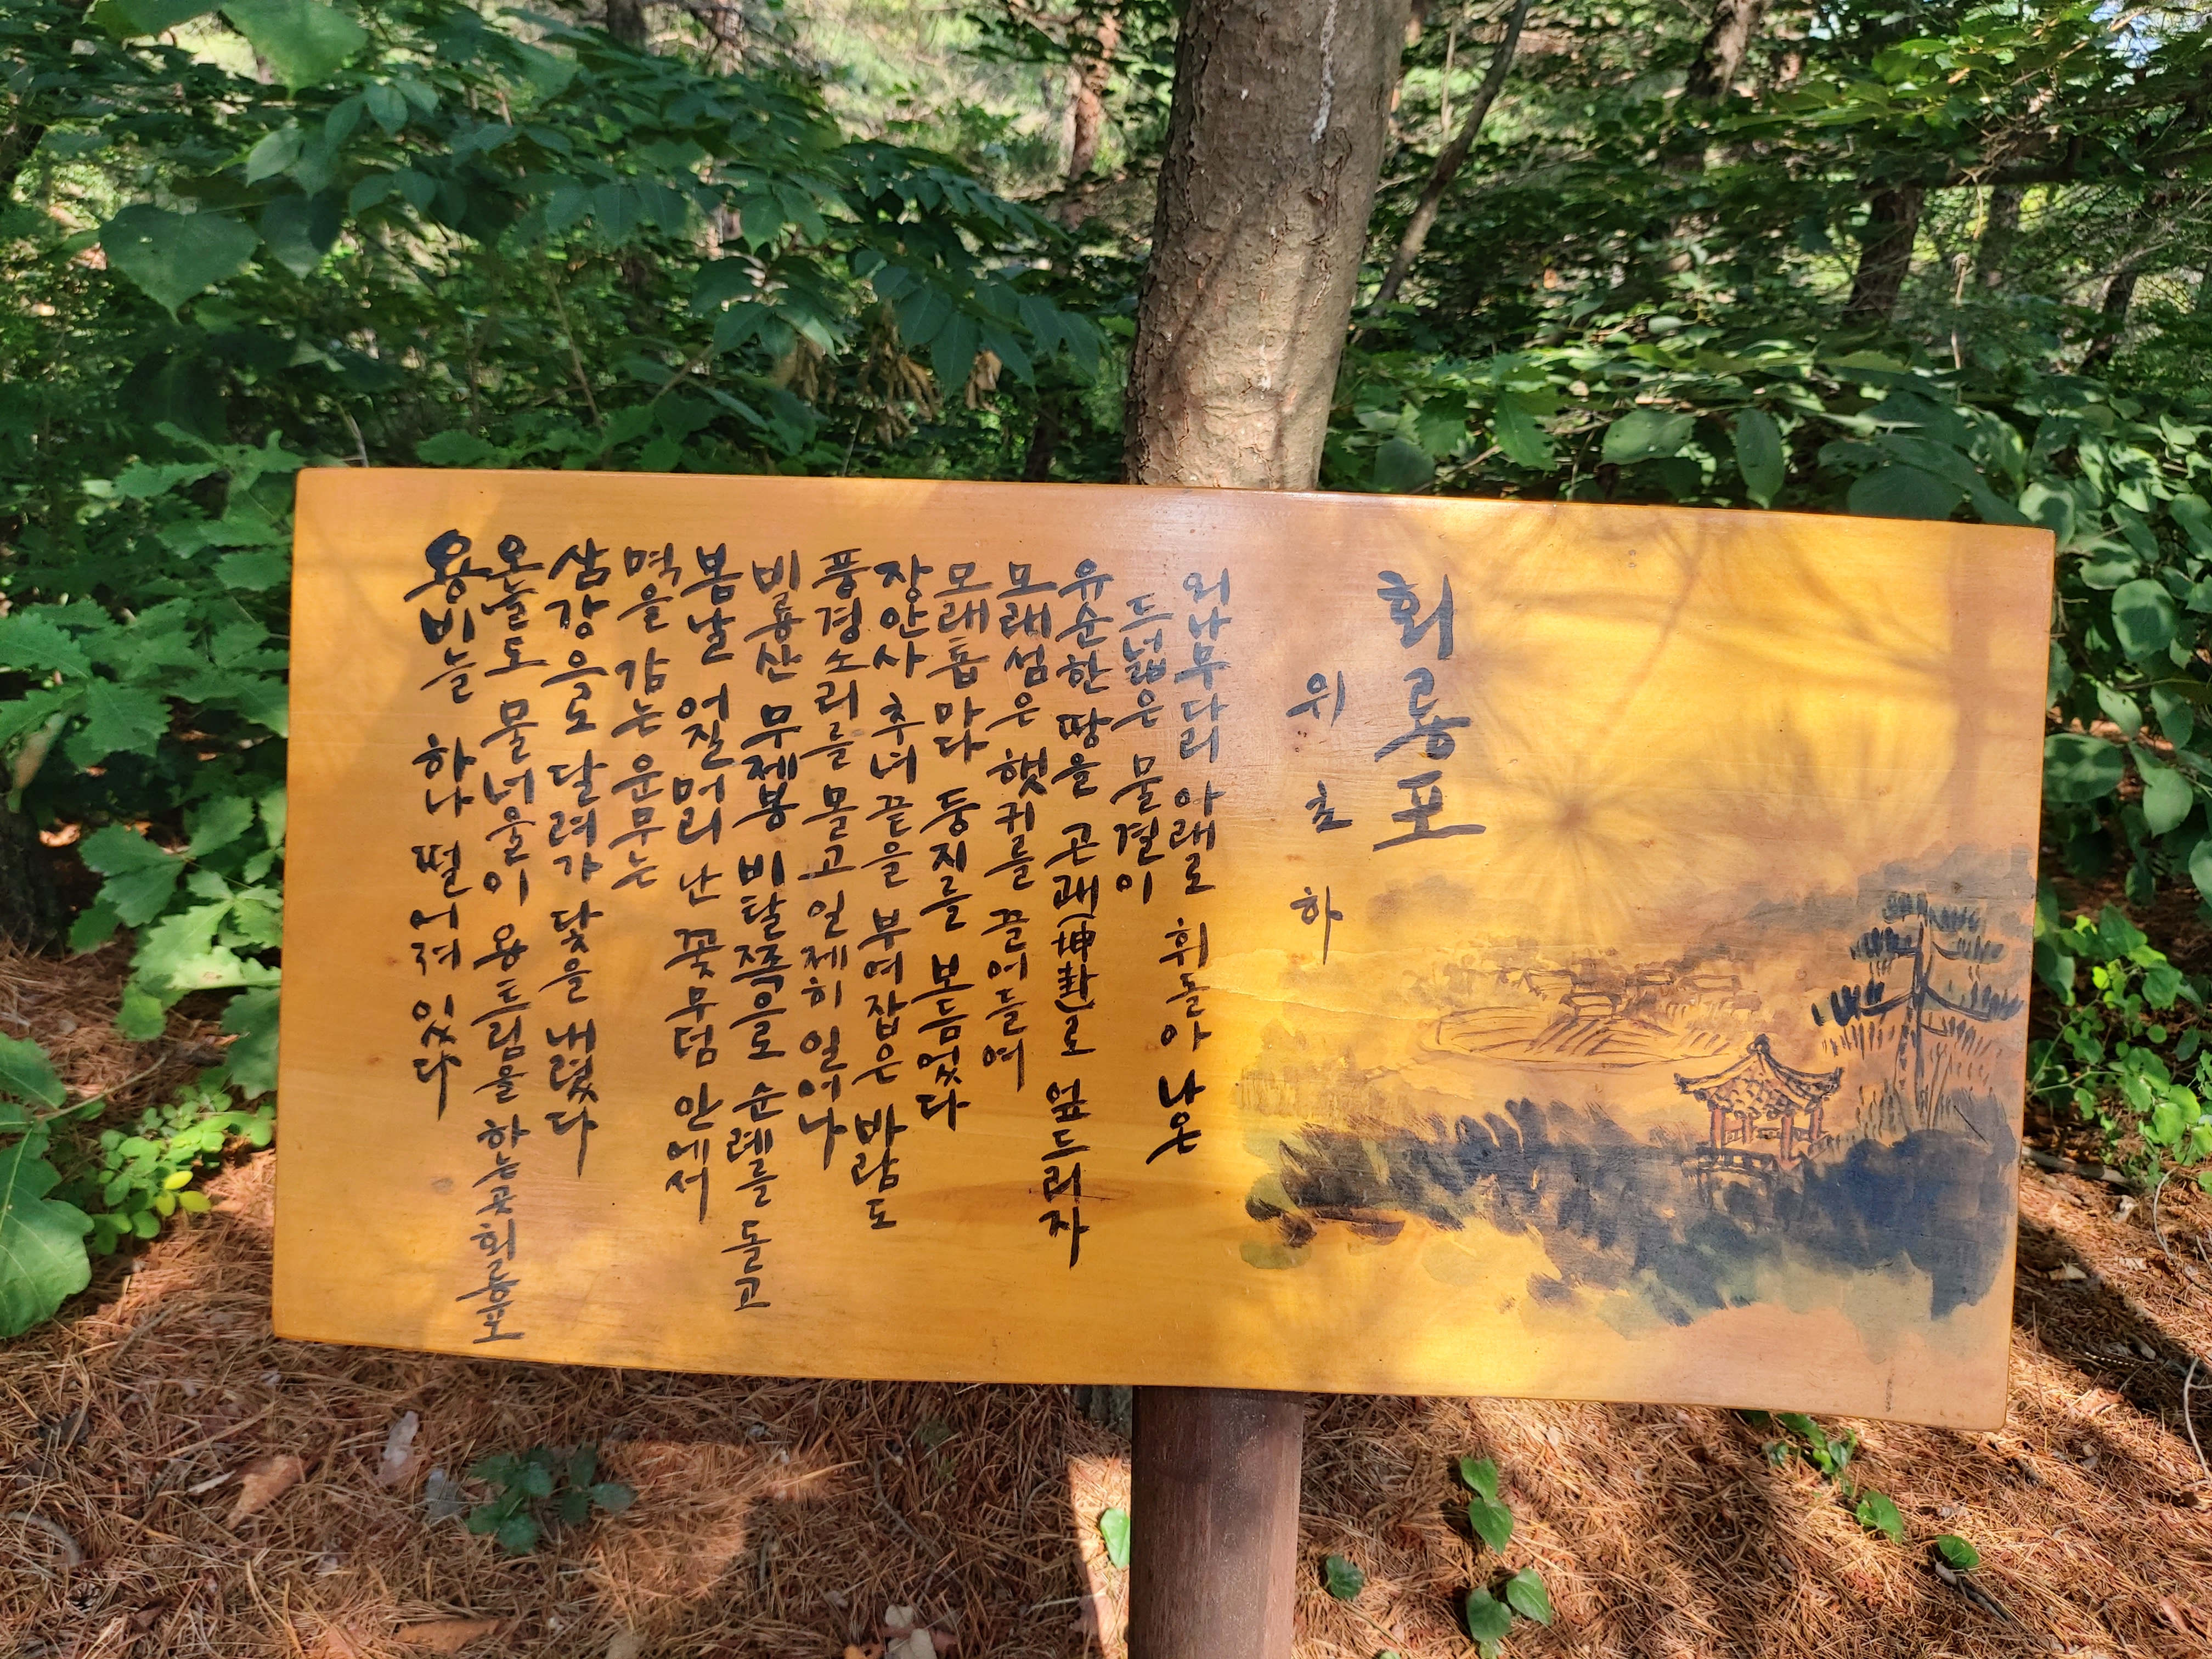 회룡포
위초하
외나무다리 아래로 휘돌아 나온
드넓은 물결이
유순한 땅을 곤괘(坤卦)로 엎드리자
모래섬은 햇귀를 끌어들여
모래톱 마다 둥지를 보듬었다
장안사 추녀 끝을 부여잡은 바람도
풍경소리를 몰고 일제히 일어나
비룡산 무제봉 비탈쪽으로 순례를 돌고
봄날 어질머리 난 꽃무덤 안에서
멱을 감는 운무는
삼강으로 달려가 닻을 내렸다
오늘도 물너울이 용트림을 하는 곳 회룡포
용비늘 하나 떨어져 있다